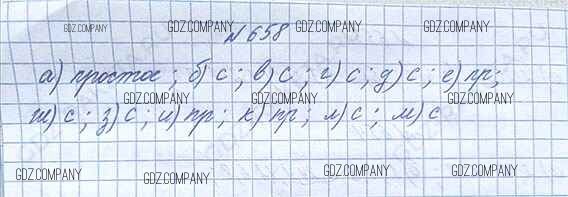 GDZ.COMPANY GDZ.COMPANY GDZ.COMPANY
№658
а) простое; б) с; в) с; г) с; д) с; е) пр;
GDZ.COMPANY GDZ.COMPANY GDZ.COMPANY
ж) с; з) с; и) пр; к) пр; л) с; м) с
GDZ.COMPANY GDZ.COMPANY GDZ.COMPANY GDZ.COMPANY